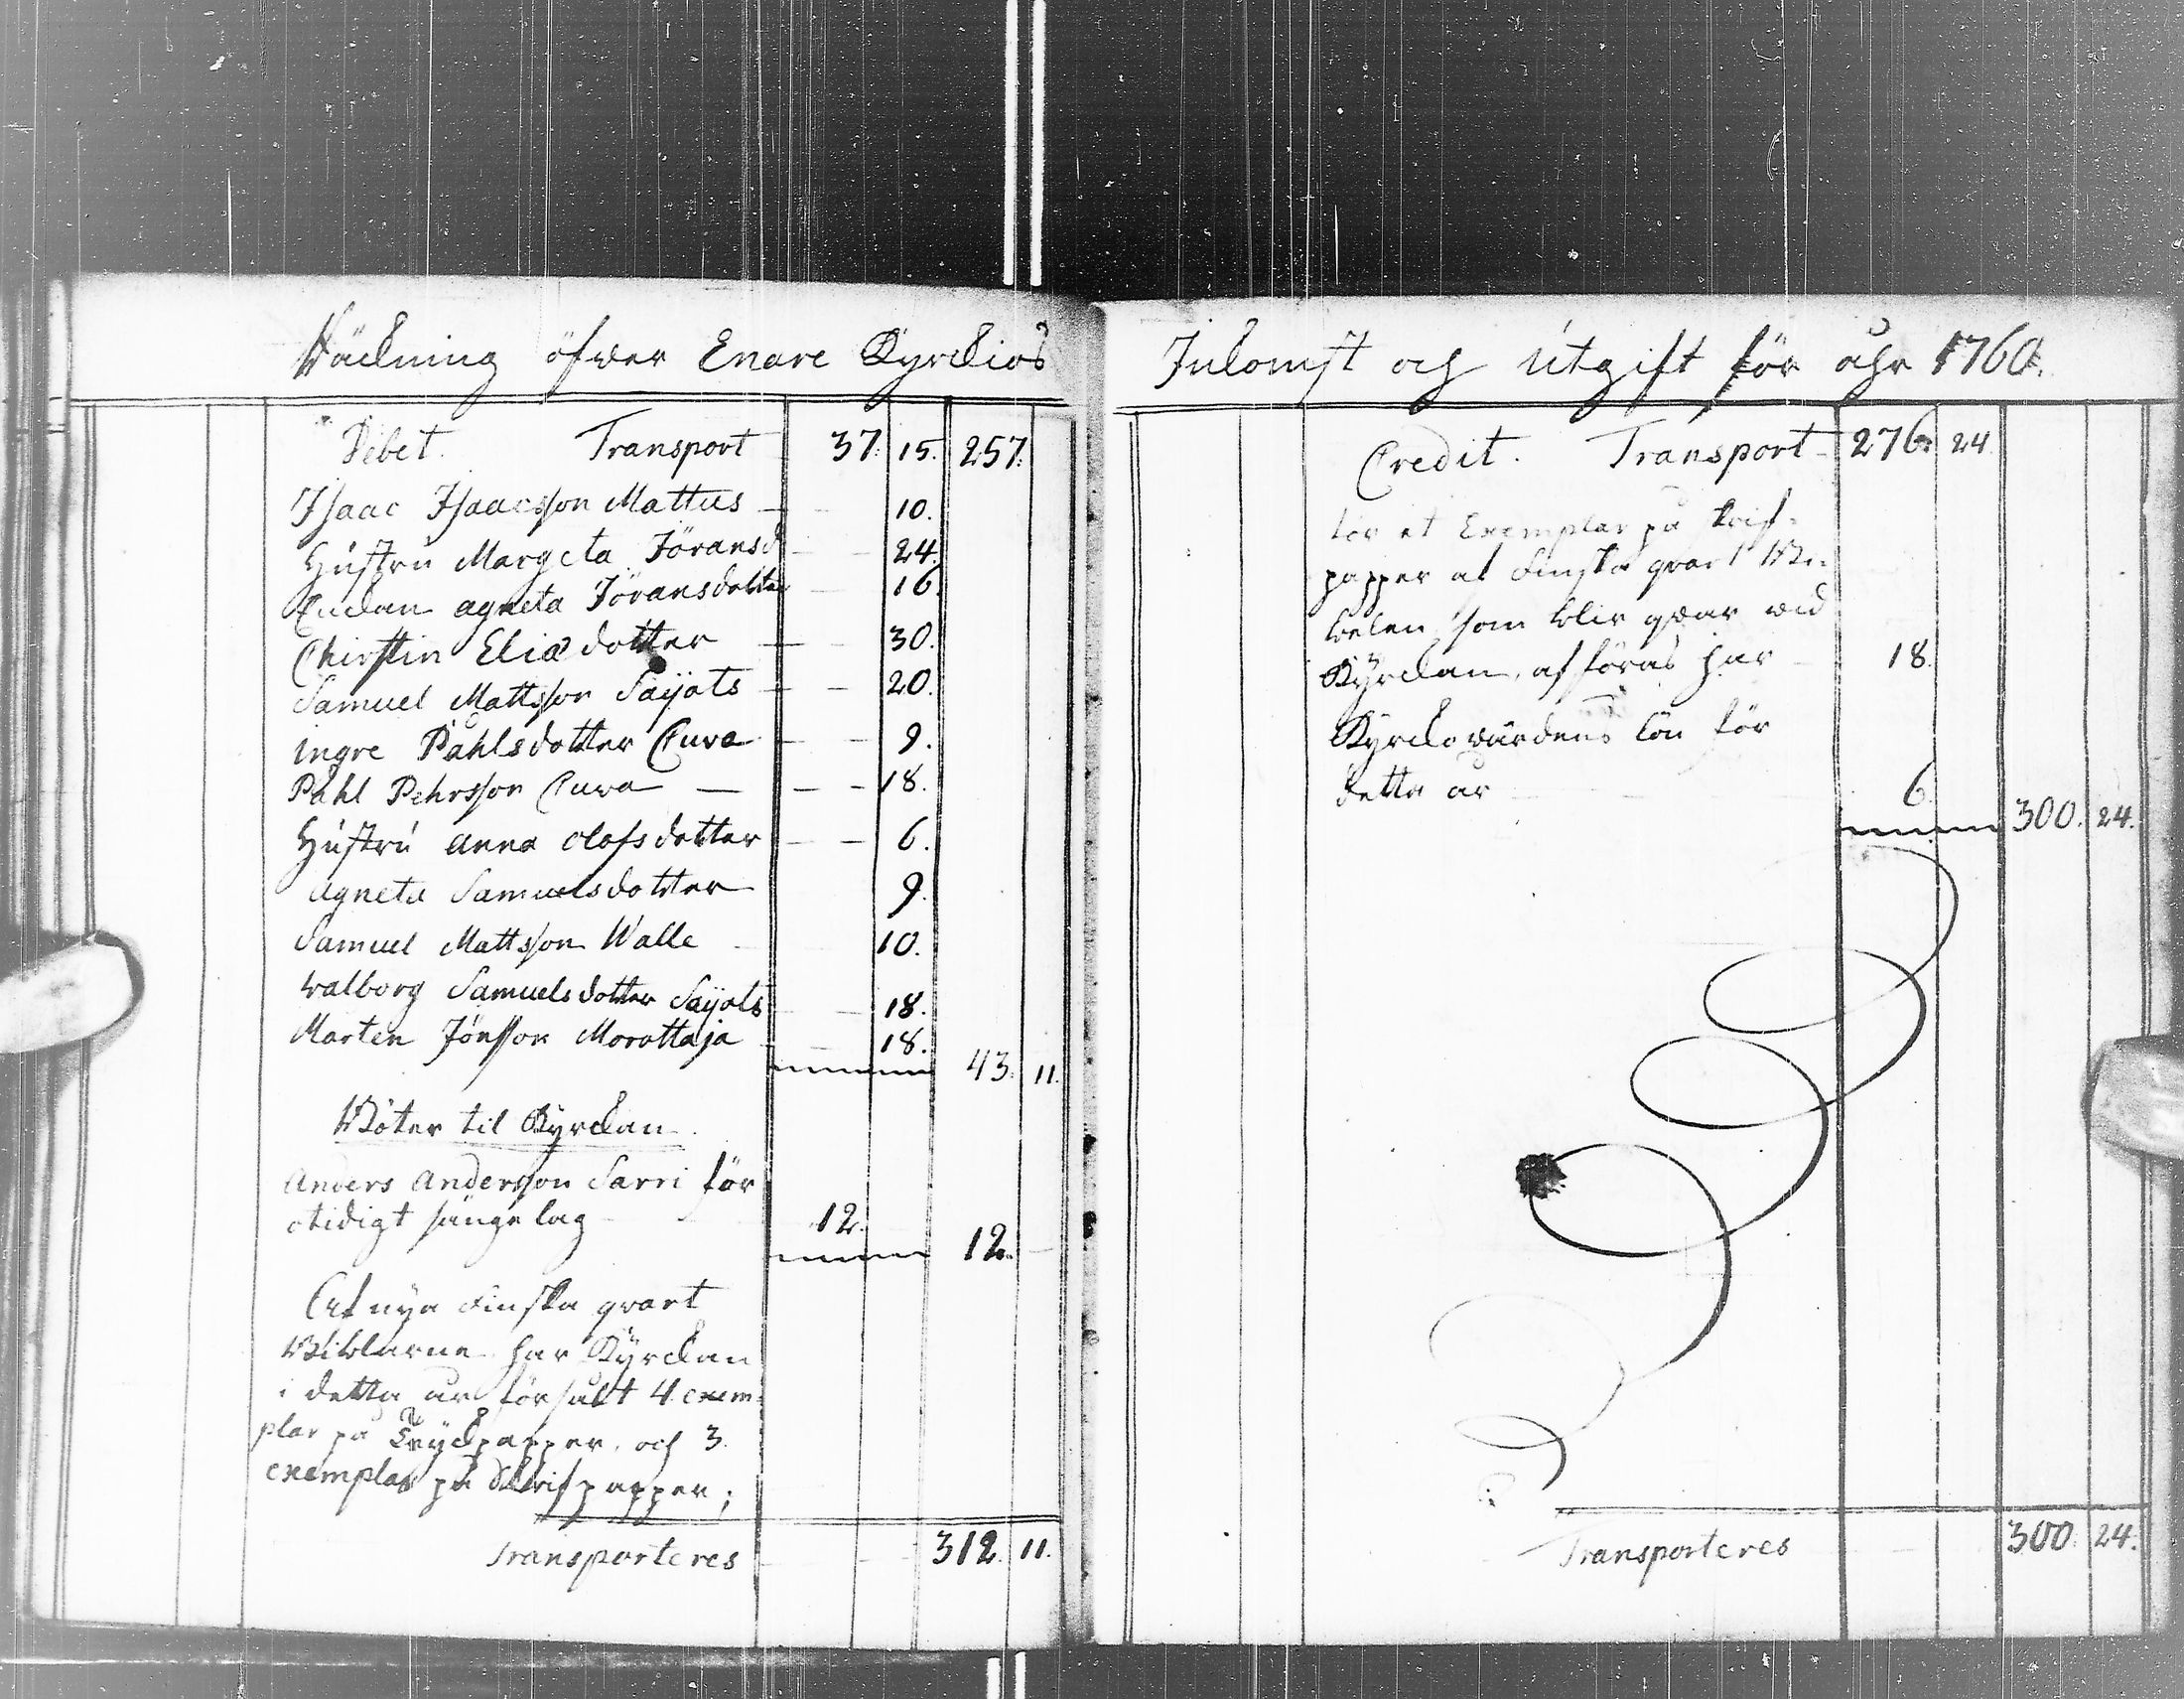 Räckning öfwer Enare Kyrckios
Debet. Transport 37. 15. 257.
Isaac Isaacsson Mattus 10.
Hustru Margeta Jöransd 24.
Enckan agneta Jöransdotter 16.
Chirstin Eliædotter 30.
Samuel Mattsson Saijots 20.
ingre Påhlsdotter Cuva 9.
Påhl Pehrsson Cuva 18.
Hustru anna olofsdotter 6.
agneta Samuelsdotter 9.
Samuel Mattsson Walle 10.
walborg Samuelsdotter Saijots 18.
Marten Jönsson Morottaja 18.
43. 11.
Böter til Kyrckan
anders andersson Sarri för
otidigt sängelag 12.
12.
Af nya Finska qvart
Biblarne har Kyrckan
i detta år försålt 4. exem-
plar på Tryckpapper, och 3
exemplar på Skrifpapper;
Transporteres 312. 11.
Inkomst och Utgift för åhr 1760.
Credit. Transport 276. 24
för et Exemplar på Skrif-
papper af Finska qvart Bi-
belen, som blir qvar wid
Kyrckan, afföras här 18.
Kyrckowärdens lön för
detta år 6.
300. 24.
Transporteres 300. 24.